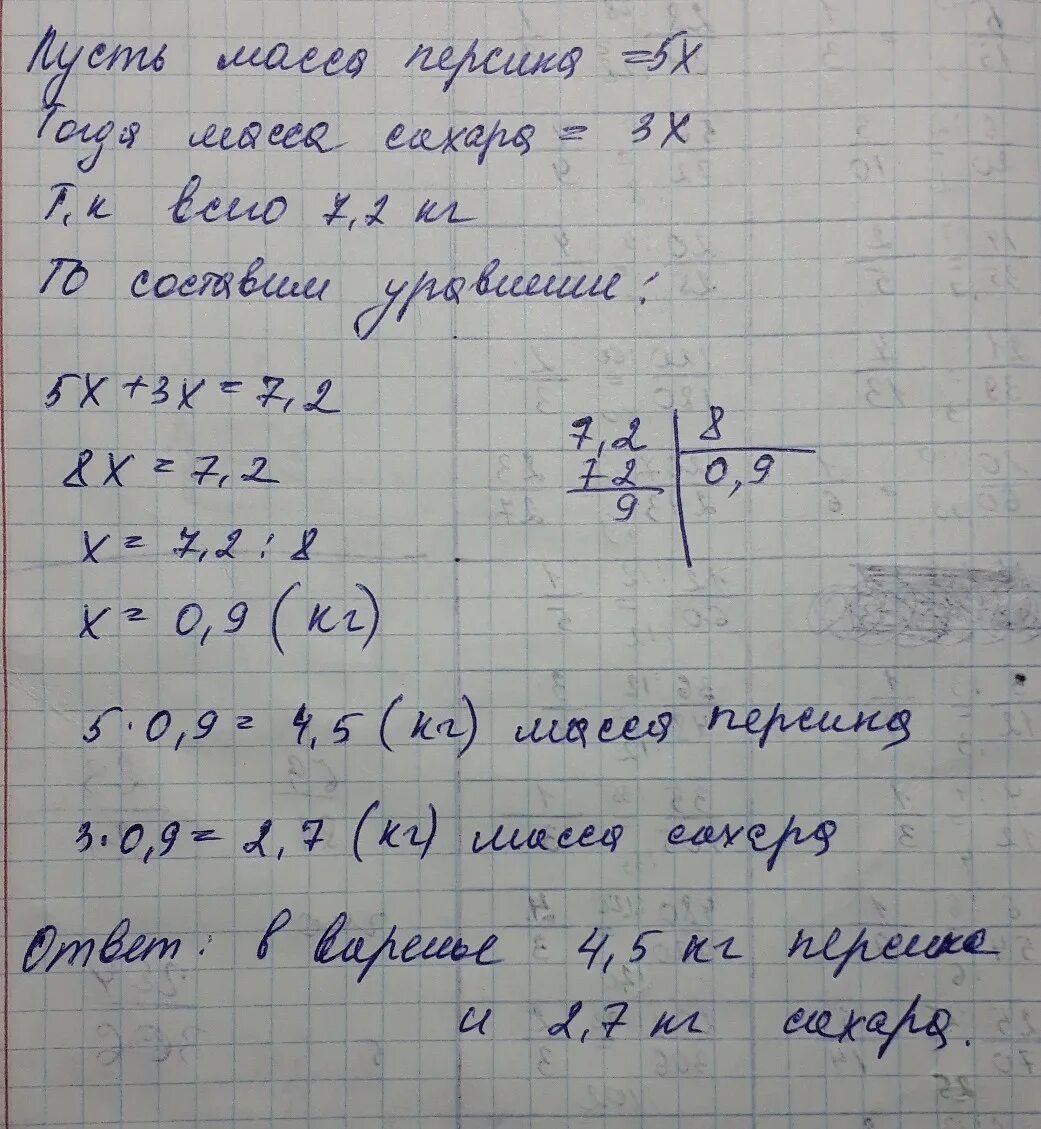 Пусть масса персика = 5х
Тогда масса сахара = 3х
Т,к всего 7,2 кг
То составим уравнение:
5х + 3х = 7,2
8х = 7,2
х = 7,2 : 8
х = 0,9 (кг)
7,2 8
72 0,9
9
5 · 0,9 = 4,5 (кг) масса персика
3 · 0,9 = 2,7 (кг) масса сахара
Ответ: в варенье 4,5 кг персика
и 2,7 кг сахара.